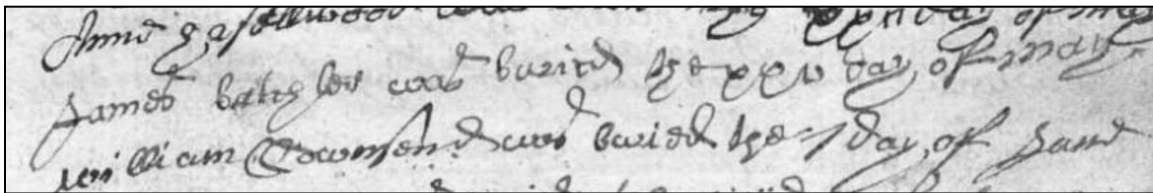 Anne Haselwood was buried the xxii day of may
James batcheler was buried the xxv day of may
william Townsend was buried the 1 day of June